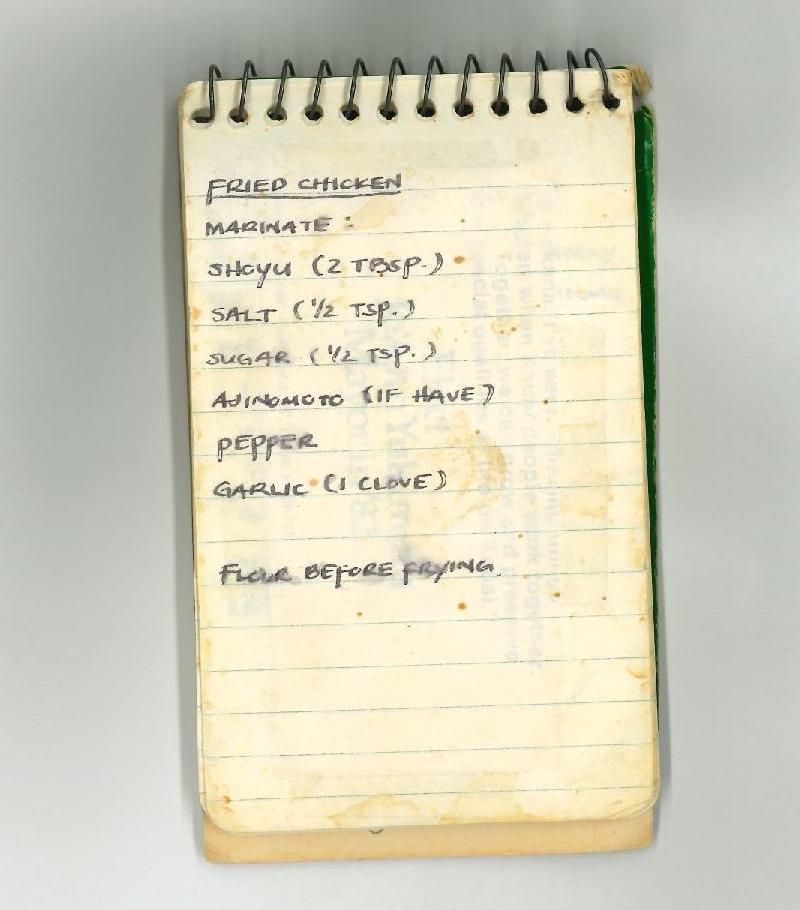 FRIED CHICKEN
MARINATE :
SHOYU (2 TBSP.)
SALT (1/2 TSP.)
SUGAR (1/2 TSP.)
AJINOMOTO (IF HAVE)
PEPPER
GARLIC (1 CLOVE)
FLOUR BEFORE FRYING.